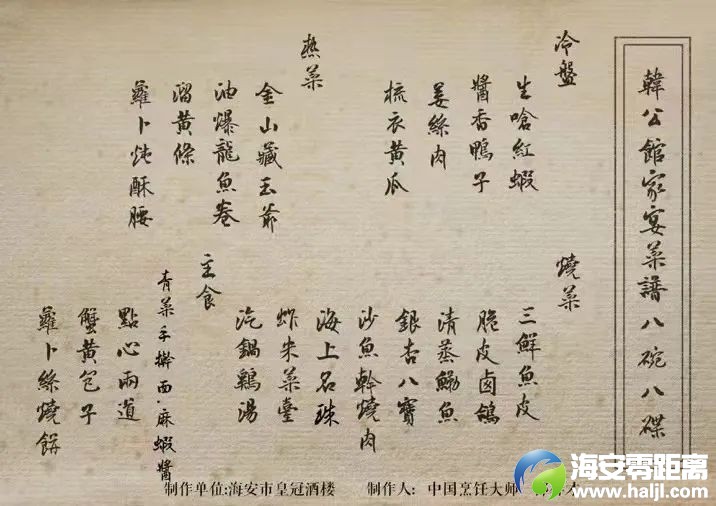 韓公館家宴菜譜八碗八碟
冷盤
生嗆紅蝦
醬香鴨子
姜絲肉
梳衣黄瓜
热菜
金山藏玉爺
油爆龍魚卷
溜黄條
蘿卜炖酥腰
燒菜
三鮮魚皮
脆皮鹵鴿
清蒸鰳魚
銀杏八寶
沙魚幹燒肉
海上名珠
炸米菜臺
汽鍋鷄湯
主食
青菜手擀面.麻蝦醬
點心兩道
蟹黄包子
蘿卜絲燒餅
制作单位:海安市皇冠酒楼 制作人: 中国烹饪大师
海安零距离
www.haijl.com